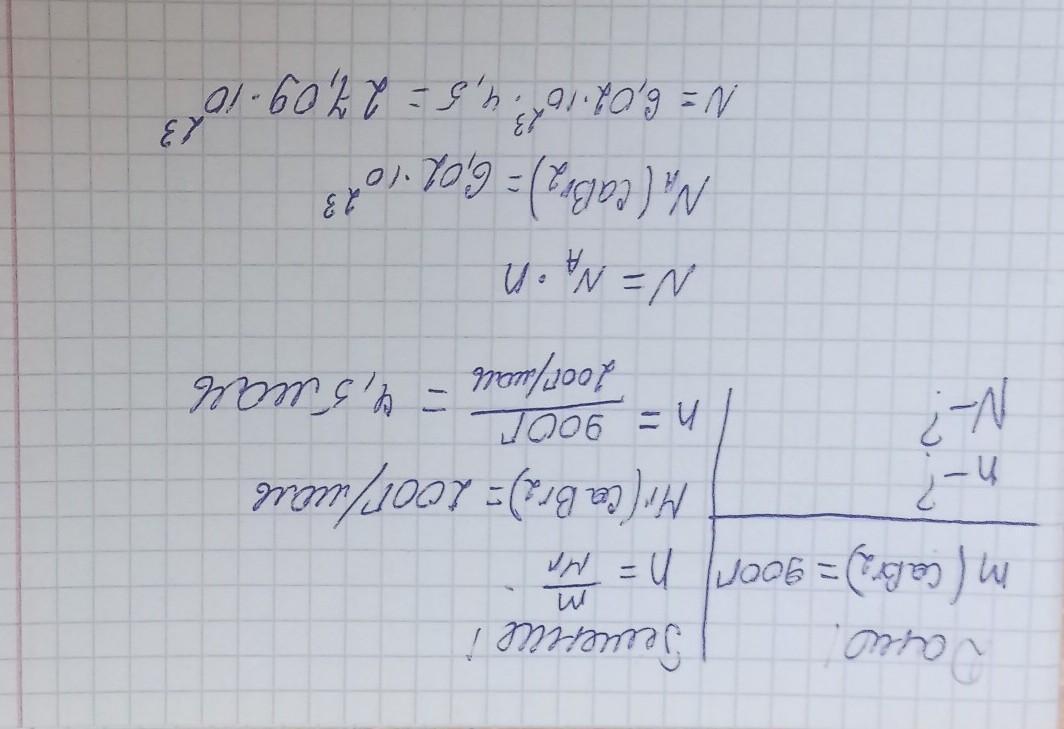 Дано:
m(CaBr2)=900г
n-?
N-?
Решение:
n = m/Mr
Mr(CaBr2)=200г/моль
n = 900г/200г/моль = 4,5моль
N = NA · n
NA(CaBr2)=6,02·10²³
N = 6,02·10²³·4,5 = 27,09·10²³